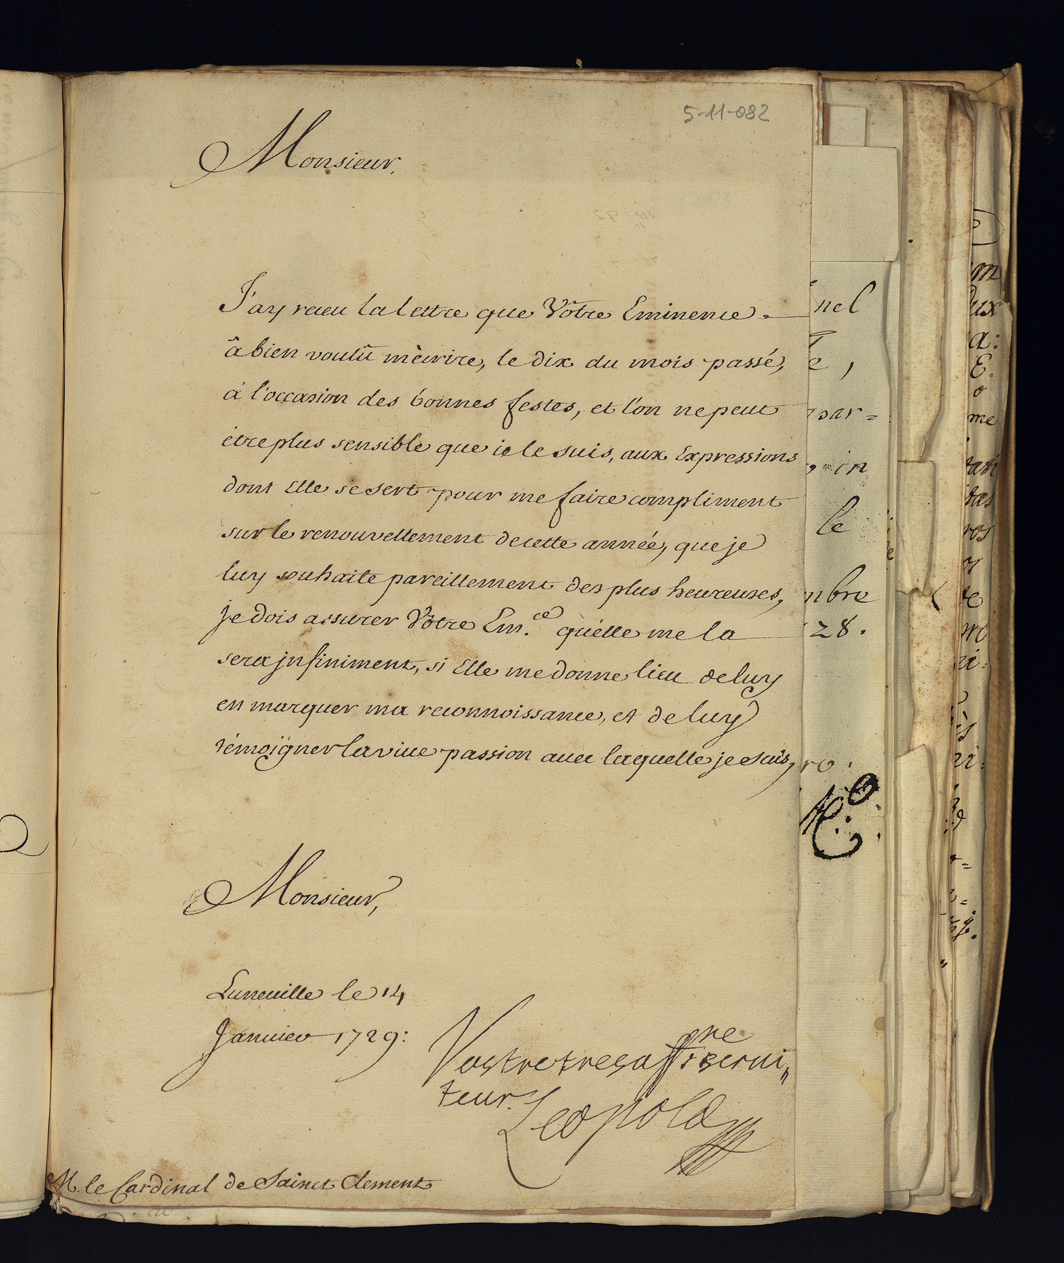 5-11-082
Monsieur.
J'ay receu la lettre que Vôtre Eminence.
â bien voulû m'ècrire, le dix du mois passé,
á l'occasion des bonnes festes, et l'on ne peut
étre plus sensible que ie le suis, aux Expressions
dont Elle se sert pour me faire compliment
sur le renouvellement de cette année, que je
luy souhaite pareillement des plus heureuses,
je dois assurer Vôtre Em.ce qu'elle me la
sera jnfiniment, si Elle me donne lieu de luy
en marquer ma reconnoissance, et de luy
témoigner la viue passion auec laquelle je suis,
Monsieur,
Luneuille le 14
Januier 1729:
Vostre tres affnne serui,,
teur.
Leopold
M. le Cardinal de Sainct Clement
nel
e,
par=
in
le
mbre
28.
ro.